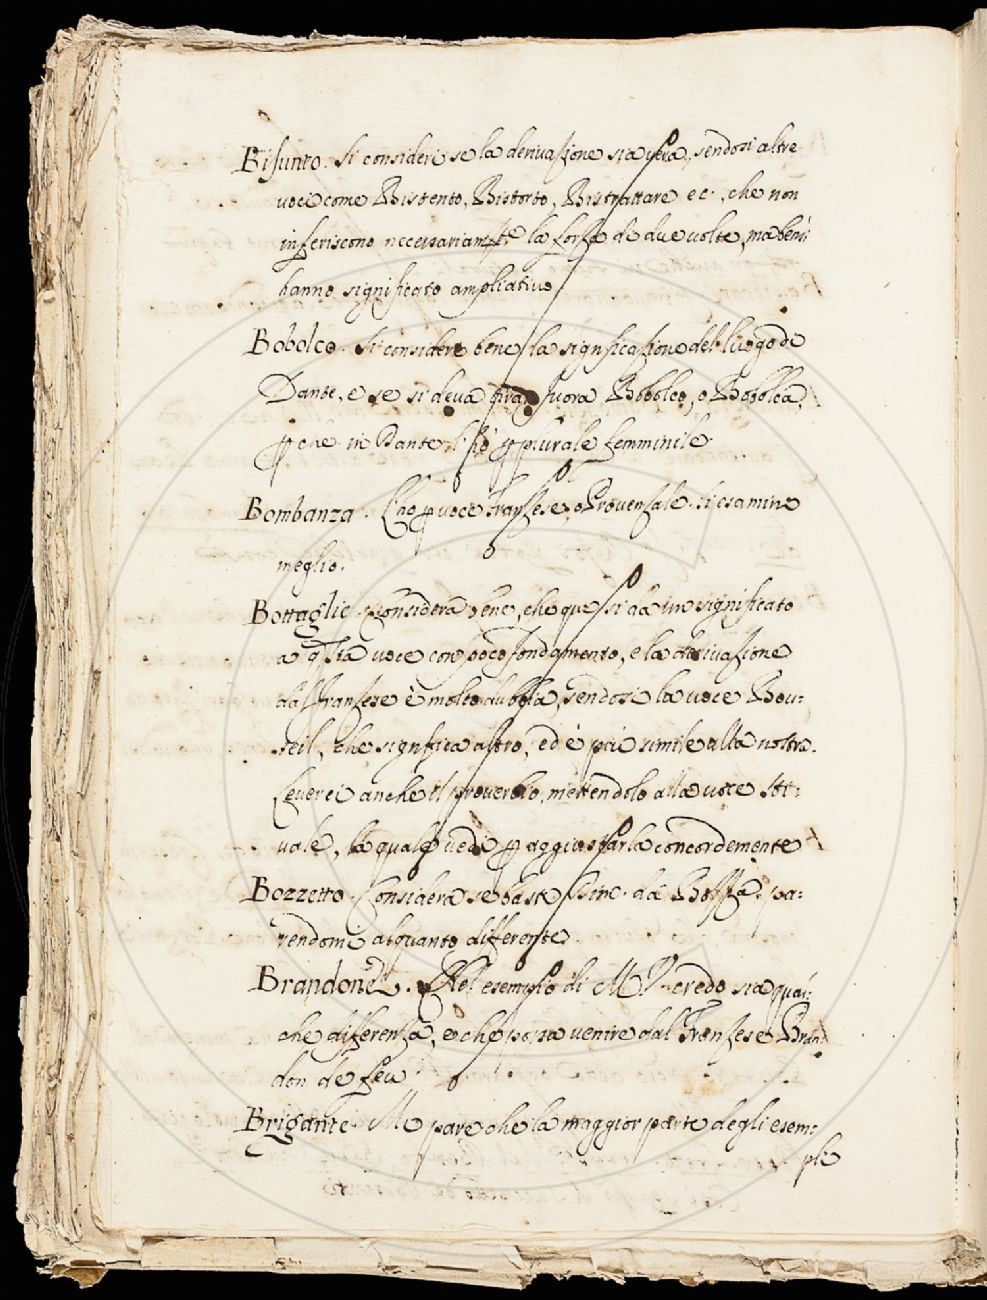 Bisunto. Si consideri se la derivazione sia vera, sendosi altre
voci come Bistento, Bistorto, Bistrattare ec., che non
inferiscono necessariamte la forza di due volte, ma bensì
hanno significato ampliativo
Bobolco. Si consideri bene la significazione del luogo di
Dante, e se si deva fuora Bobolco, o Bobolca,
p che in Dante p plurale femminile.
Bombanza. L'ho p voce Franzese, o Provenzale. Si esamini
meglio.
Bottaglie. Considera bene, che que si dà un significato
a qsta voce con poco fondamento, e la derivazione
dal Franzese è molto dubbia, sendosi la voce Bou:
teil, che significa altro, ed è più simile alla nostra.
Leverei anche il proverbio, mettendolo alla voce Sti:
vale, la quale vedi p aggiustarla concordemente
Bozzetto. Considera se basti dim. da Bozza, pa:
rendomi alquanto differente.
Brandone. Nel esempio di M. V. credo sia qual:
che differenza, e che possa venire dal Franzese Bran
don de feu.
Brigante. Mi pare che la maggior parte degli esem:
pli